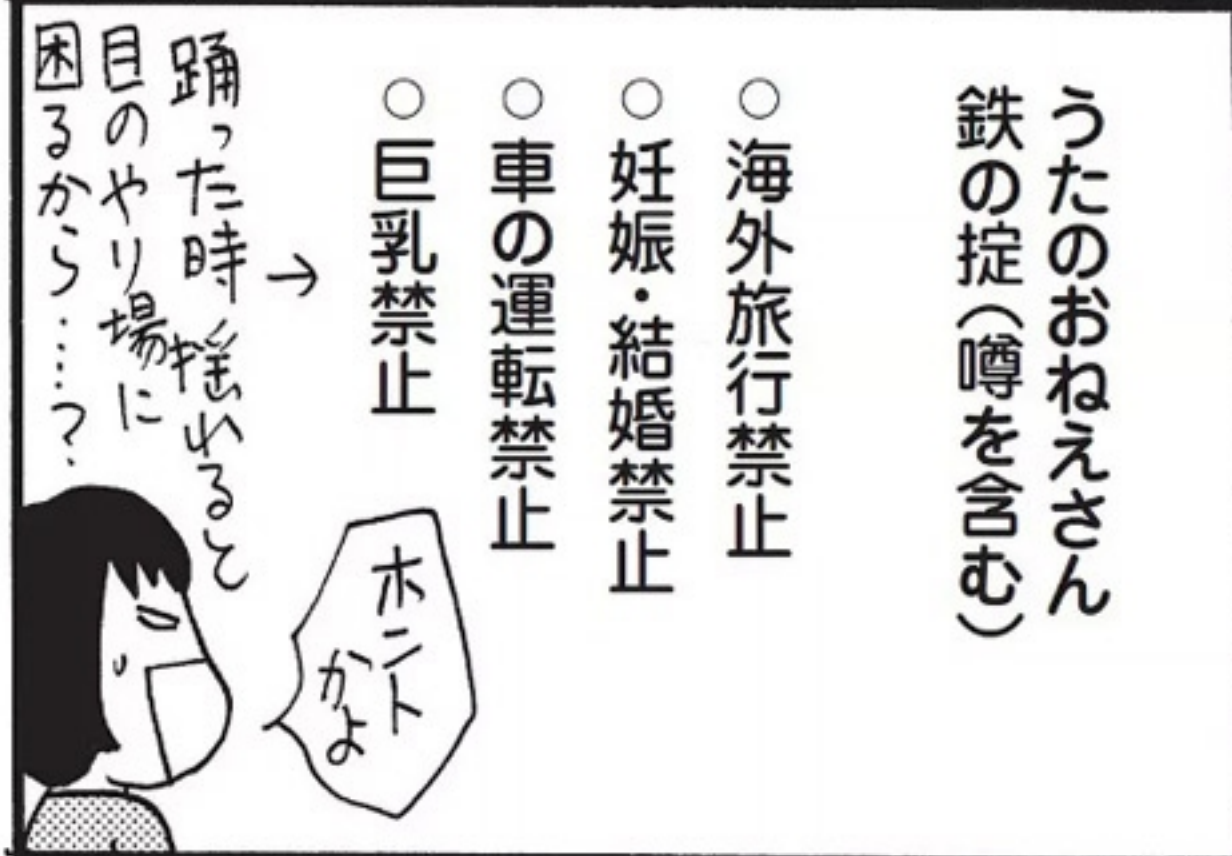 うたのおねえさん
鉄の掟(噂を含む)
○海外旅行禁止
○妊娠・結婚禁止
○車の運転禁止
○巨乳禁止
→
踊った時揺れると
目のやり場に
困るから……?
ホント
かよ